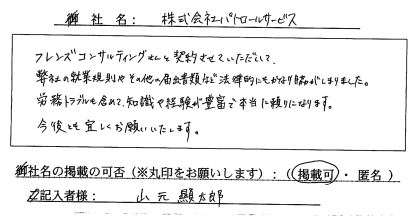 御社名： 株式会社パトロールサービス
フレンズコンサルティングさんと契約させていただいて、
弊社の就業規則やその他の届出書類など法律的にもかなり脇がしまりました。
労務トラブルも含めて、知識や経験が豊富で本当に頼りになります。
今後とも宜しくお願いいたします。
御社名の掲載の可否（※丸印をお願いします）：（掲載可・匿名）
ご記入者様： 山元 顕太郎